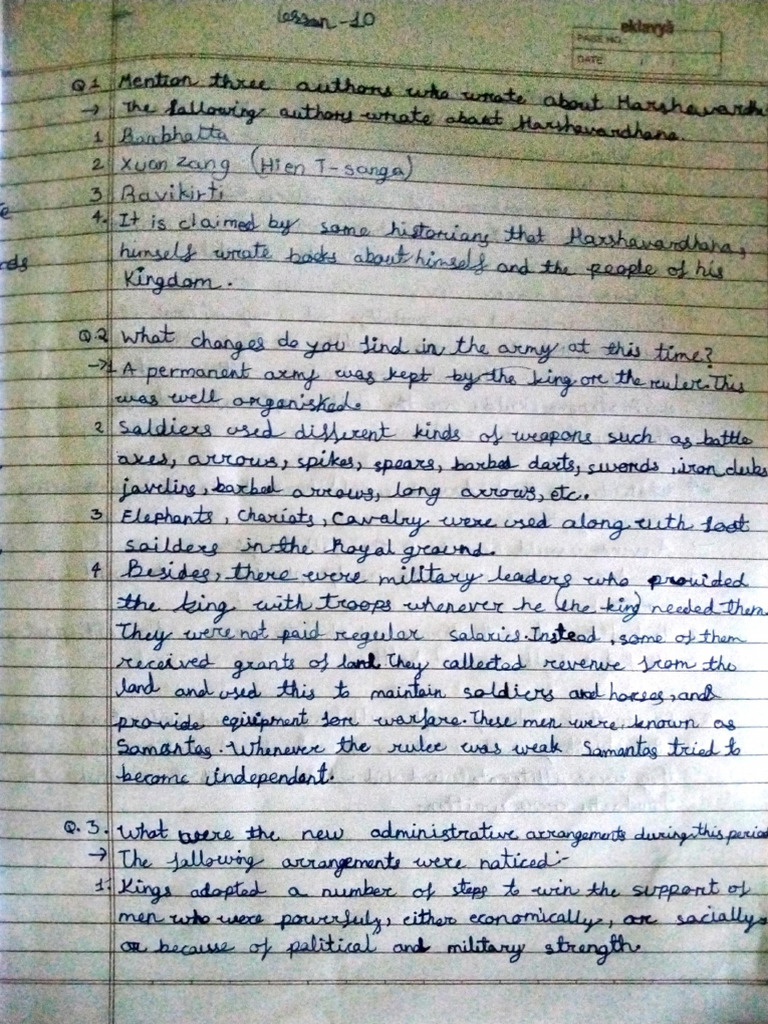 Lesson - 10
eklavya
PAGE NO.
DATE / /
Q 1 Mention three authors who wrote about Harshavardh
→ The following authors wrote about Harshavardhana.
1 Banbhatta
2 Xuan Zang (Hien T-sanga)
3 Ravikirti
4. It is claimed by some historians that Harshavardhana,
himself wrote books about himself and the people of his
Kingdom.
Q.2 What changes do you find in the army at this time?
→1 A permanent army was kept by the king or the ruler. This
was well organisked.
2 Soldiers used different kinds of weapons such as battle
axes, arrows, spikes, spears, barbed darts, swords, iron clubs
javelins, barbed arrows, long arrows, etc.
3 Elephants, Chariots, Cavalry were used along with foot
sailders in the Royal ground.
4 Besides, there were military leaders who provided
the king with troops whenever he (the king) needed them.
They were not paid regular salaries. Instead, some of them
received grants of land. They collected revenue from the
land and used this to maintain soldiers and horses, and
provide equipment for warfare. These men were known as
Samantas. Whenever the ruler was weak Samantas tried to
become independent.
Q. 3. What were the new administrative arrangements during this period
→ The following arrangements were noticed:-
1. Kings adopted a number of steps to win the support of
men who were powerfuly, either economically, or socially
or because of political and military strength.